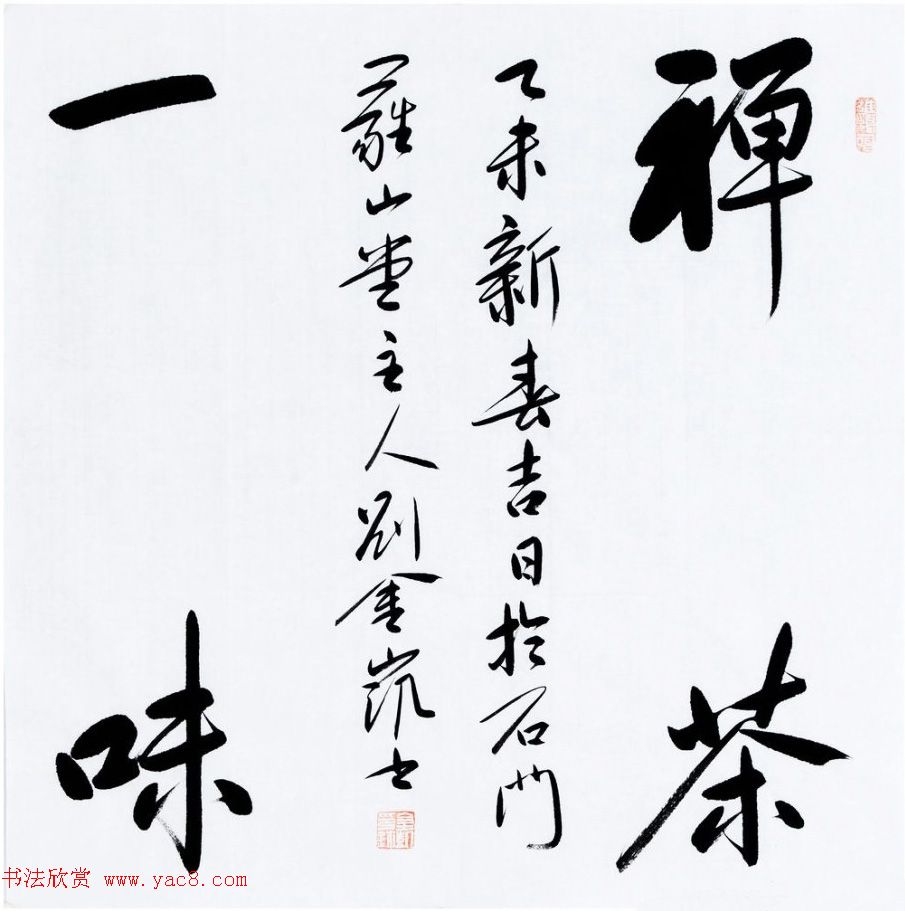 禅茶
乙未新春吉日於石門
山堂主人劉金凱书
一味
书法欣赏 www.yac8.com